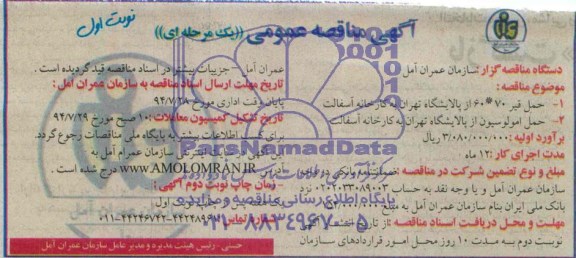 نوبت اول
آگهی مناقصه عمومی ((یک مرحله ای))
دستگاه مناقصه گزار: سازمان عمران آمل
موضوع مناقصه:
۱- حمل قیر ۷۰*۶۰ از پالایشگاه تهران به کارخانه آسفالت
۲- حمل امولوسیون از پالایشگاه تهران به کارخانه آسفالت
برآورد اولیه: ۳/۰۸۰/۰۰۰/۰۰۰ ریال
مدت اجرای کار: ۱۲ ماه
مبلغ و نوع تضمین شرکت در مناقصه:
سازمان عمران آمل و یا وجه نقد به حساب ۰۲۰۲۰۳۳۰۸۹۰۰۳ نزد
بانک ملی ایران بنام سازمان عمران آمل به مبلغ
مهلت و محل دریافت اسناد مناقصه: از تاریخ
نوبت دوم به مدت ۱۰ روز محل امور قراردادهای سازمان
عمران آمل - جزییات بیشتر در اسناد مناقصه قید گردیده است.
تاریخ مهلت ارسال اسناد مناقصه به سازمان عمران آمل:
پایان وقت اداری مورخ ۹۴/۷/۲۸
تاریخ تشکیل کمیسیون معاملات: ۱۰ صبح مورخ ۹۴/۷/۲۹
برای کسب اطلاعات بیشتر به پایگاه ملی مناقصات رجوع گردد.
سازمان عمران آمل به
آدرس WWW.AMOLOMRAN.IR درج شده است.
زمان چاپ نوبت دوم آگهی:
شماره تماس:
حسنی - رئیس هیئت مدیره و مدیر عامل سازمان عمران آمل
ParsNamadData
پایگاه اطلاع رسانی مناقصه و مزایده
۰۲۱-۸۸۳۴۹۶۷۰-۵